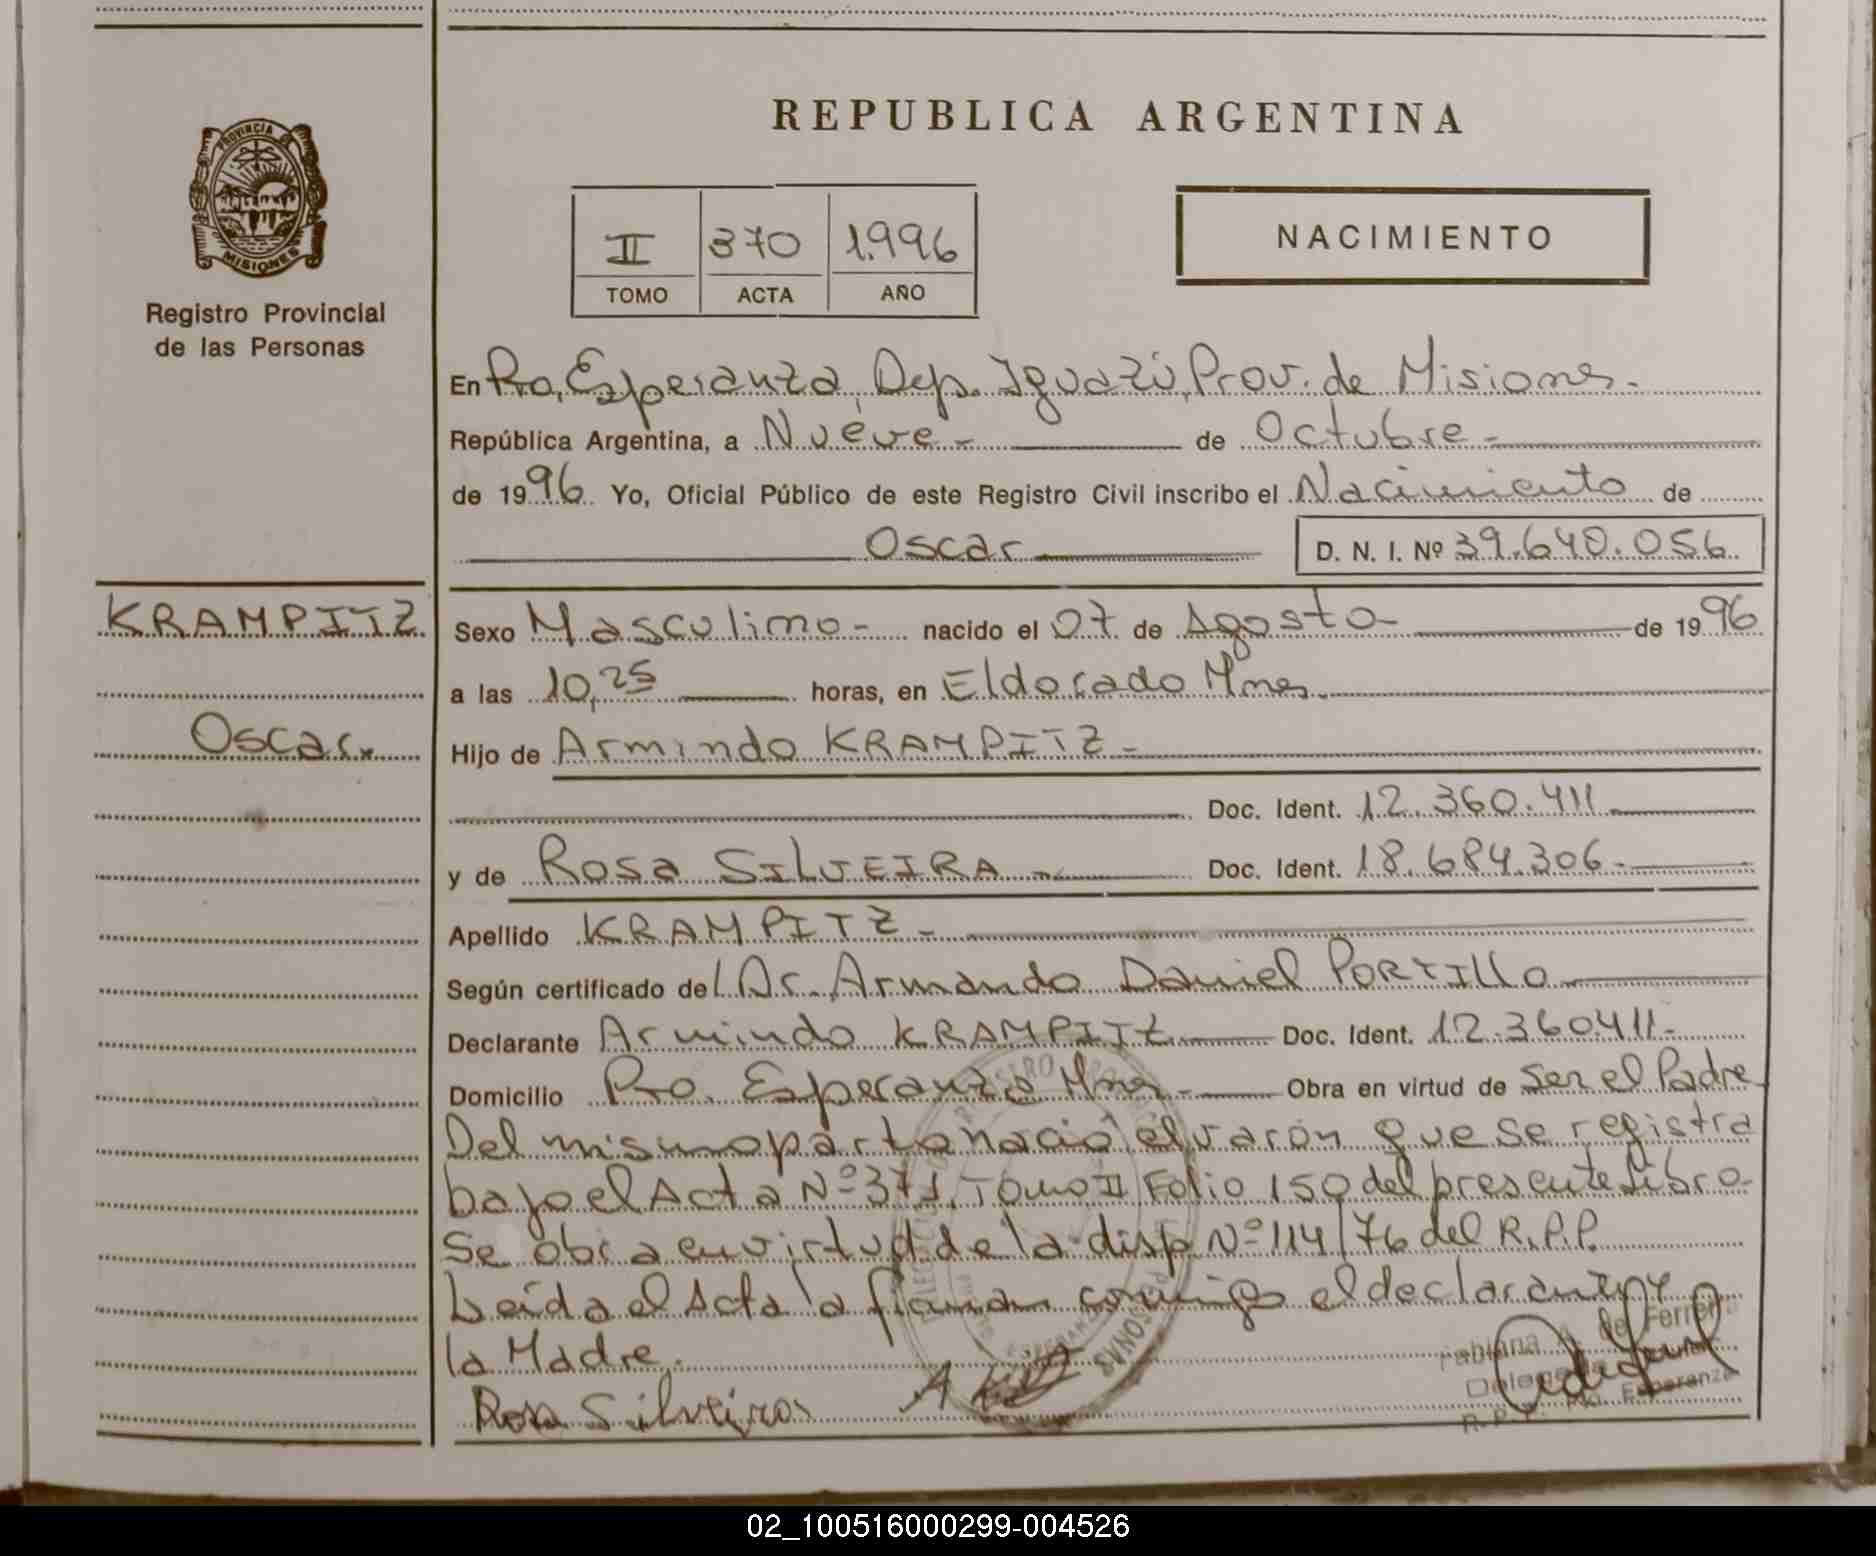 REPUBLICA ARGENTINA
PROVINCIA DE
MISIONES
Registro Provincial
de las Personas
II 370 1.996
TOMO ACTA AÑO
NACIMIENTO
En Pto. Esperanza, Dep. Iguazú, Prov. de Misiones.-
República Argentina, a Nueve - de Octubre -
de 1996 Yo, Oficial Público de este Registro Civil inscribo el Nacimiento de
Oscar D. N. I. Nº 39.640.056
KRAMPITZ
Oscar.
Sexo Masculino - nacido el 07 de Agosto - de 1996
a las 10,25 horas, en Eldorado Mnes.
Hijo de Armindo KRAMPITZ -
Doc. Ident. 12.360.411
y de Rosa SILVEIRA - Doc. Ident. 18.684.306 -
Apellido KRAMPITZ -
Según certificado del Dr. Armando Daniel PORTILLO
Declarante Armindo KRAMPITZ Doc. Ident. 12.360.411 -
Domicilio Pto. Esperanza Mnes - Obra en virtud de ser el Padre
Del mismo parto nació el varón que se registra
bajo el Acta Nº 371, Tomo II Folio 150 del presente Libro -
Se obra en virtud de la disp. Nº 114/76 del R.P.P.
Leída el Acta la firman conmigo el declarante y
la Madre.
Rosa Silveira
Fabiana A. de Ferreira
R. P. P. Pto. Esperanza
02_100516000299-004526